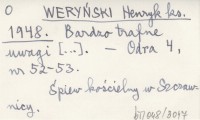 O WERYŃSKI Henryk ks.
1948. Bardzo trafne
uwagi [...]. — Odra 4,
nr 52-53.
Śpiew kościelny w Szczaw-
nicy.